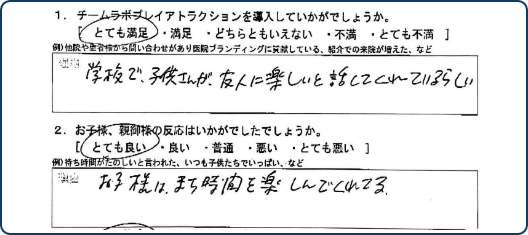 1. チームラボプレイアトラクションを導入していかがでしょうか。
[ とても満足 ・満足 ・どちらともいえない ・不満 ・とても不満 ]
例)他院や患者様から問い合わせがあり医院ブランディングに貢献している、紹介での来院が増えた、など
学校で、子供さんが、友人に楽しいと話してくれているらしい
2. お子様、親御様の反応はいかがでしたでしょうか。
[ とても良い ・良い ・普通 ・悪い ・とても悪い ]
例)待ち時間がたのしいと言われた、いつも子供たちでいっぱい、など
お子様は、まち時間を楽しんでくれてる。